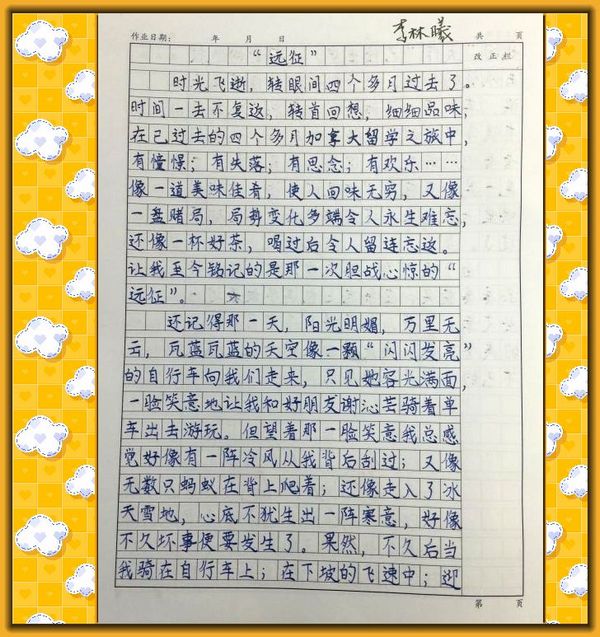 李林曦
作业日期： 年 月 日 共 页
改正栏
“远征”
时光飞逝，转眼间四个多月过去了。
时间一去不复返，转首回想，细细品味，
在已过去的四个多月加拿大留学之旅中，
有憧憬；有失落；有思念；有欢乐……
像一道美味佳肴，使人回味无穷，又像
一盘赌局，局势变化多端令人永生难忘，
还像一杯好茶，喝过后令人留连忘返。
让我至今铭记的是那一次胆战心惊的“
远征”。
还记得那一天，阳光明媚，万里无
云，瓦蓝瓦蓝的天空像一颗“闪闪发亮”
的自行车向我们走来，只见她容光满面，
一脸笑意地让我和好朋友谢沁芸骑着单
车出去游玩。但望着那一脸笑意我总感
觉好像有一阵冷风从我背后刮过；又像
无数只蚂蚁在背上爬着；还像走入了冰
天雪地，心底不犹生出一阵寒意，好像
不久坏事便要发生了。果然，不久后当
我骑在自行车上；在下坡的飞速中；迎
第 页